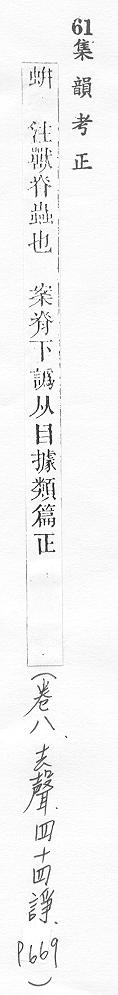 61集韻考正
蛢 注獸脊蟲也 案脊下譌从目據類篇正
(卷八、去聲、四十四諍、P669)